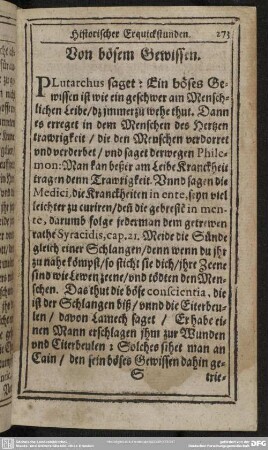 Historischer Erquickstunden. 273
Von bösem Gewissen.
PLutarchus saget: Ein böses Ge-
wissen ist wie ein geschwer am Mensch-
lichen Leibe / dz jmmerzu wehe thut. Dann
es erreget in dem Menschen des Hertzen
trawrigkeit / die den Menschen verdorret
vnd verderbet / vnd saget derwegen Phile-
mon: Man kan besser am Leibe Kranckheit
tragen denn Trawrigkeit. Vnnd sagen die
Medici, die Kranckheiten in ente, seyn viel
leichter zu curiren / deñ die gebrestē in men-
te, darumb folge jederman dem getrewen
rathe Syracidis, cap. 21. Meide die Sünde
gleich einer Schlangen / denn wenn du jhr
zu nahe kömpst / so sticht sie dich / jhre Zeene
sind wie Lewenzeene / vnd tödten den Men-
schen. Das thut die böse conscientia, die
ist der Schlangen biß / vnnd die Eiterbeu-
len / davon Lamech saget / Er habe ei-
nen Mann erschlagen jhm zur Wunden
vnd Eiterbeulen: Solches sihet man an
Cain / den sein böses Gewissen dahin ge-
S trie-